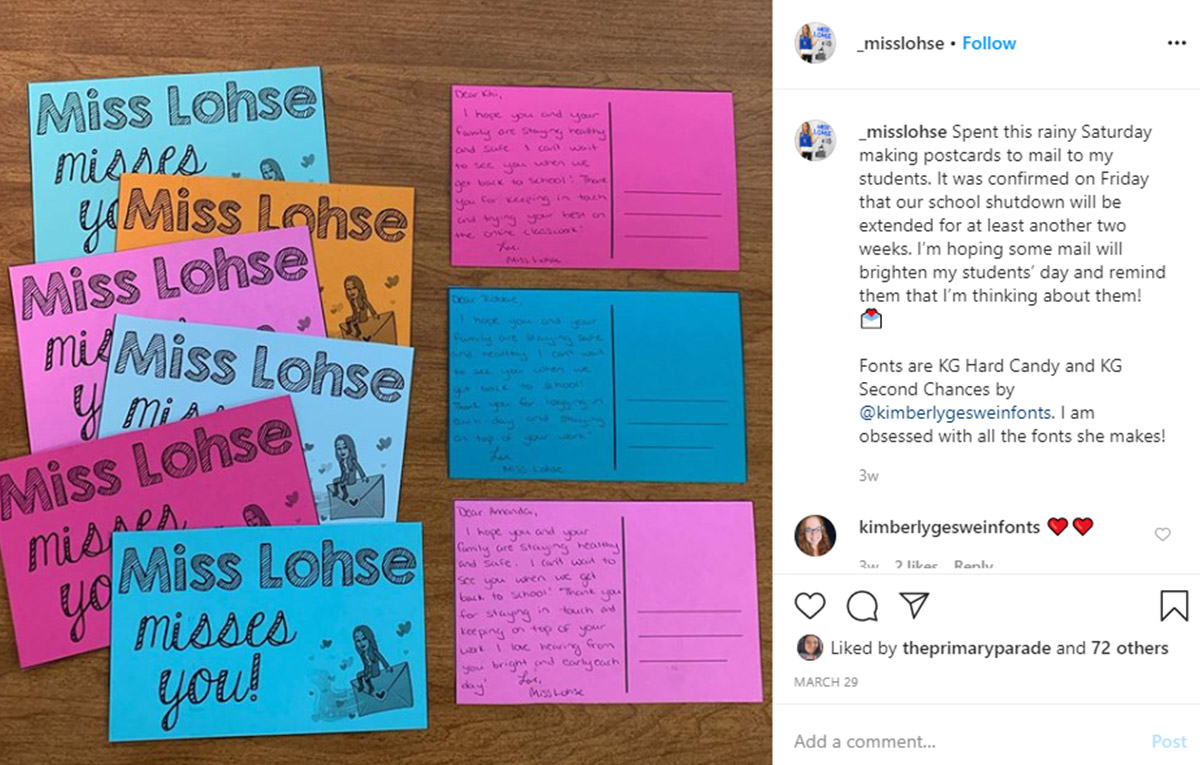 Miss Lohse
misses
yo
Miss Lohse
Miss Lohse
mis
y
Miss Lohse
mis
Miss Lohse
misses
yo
Miss Lohse
misses
you!
I hope you and your
family are staying healthy
and safe. I can't wait
to see you when we
get back to school! Thank
you for keeping in touch
and trying your best on
the online classwork!
Love,
Miss Lohse
I hope you and your
family are staying safe
and healthy. I can't wait
to see you when we
get back to school!
Thank you for logging in
each day and staying
on top of your work!
Love,
Miss Lohse
Dear Amanda,
I hope you and your
family are staying healthy
and safe. I can't wait to
see you when we get
back to school! Thank you
for staying in touch and
keeping on top of your
work. I love hearing from
you bright and early each
day!
Love,
Miss Lohse
_misslohse • Follow
_misslohse Spent this rainy Saturday
making postcards to mail to my
students. It was confirmed on Friday
that our school shutdown will be
extended for at least another two
weeks. I'm hoping some mail will
brighten my students' day and remind
them that I'm thinking about them!
Fonts are KG Hard Candy and KG
Second Chances by
@kimberlygesweinfonts. I am
obsessed with all the fonts she makes!
3w
kimberlygesweinfonts
3w 2 likes Reply
Liked by theprimaryparade and 72 others
MARCH 29
Add a comment... Post